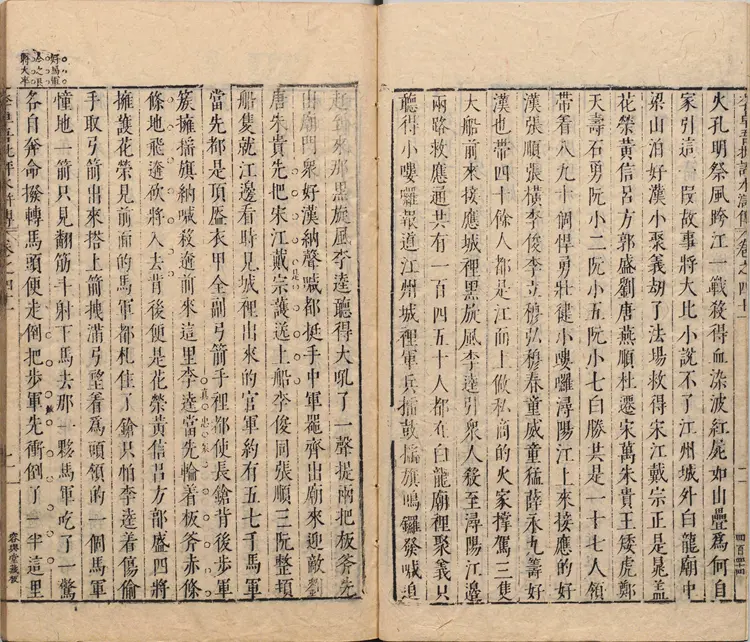 李卓吾批評水滸傳 卷之四十
火孔明祭風昤江一戰殺得血染波紅屍如山疊為何自
家引這一段故事將大比小說不了江州城外白龍廟中
梁山泊好漢小聚義刼了法場救得宋江戴宗正是晁葢
花榮黃信呂方郭盛劉唐燕順杜遷宋萬朱貴王矮虎鄭
天壽石勇阮小二阮小五阮小七白勝共是一十七人領
帶着八九十個悍勇壯健小嘍囉潯陽江上來接應的好
漢張順張橫李俊李立穆弘穆春童威童猛薛永九籌好
漢也帶四十餘人都是江面上做私商的火家撑駕三隻
大船前來接應城裡黑旋風李逵引眾人殺至潯陽江邊
兩路救應通共有一百四五十人都在白龍廟裡聚義只
聽得小嘍囉報道江州城裡軍兵擂鼓搖旗鳴鑼發喊追
趕到來那黑旋風李逵聽得大吼了一聲提兩把板斧先
出廟門眾好漢吶聲喊都挺手中軍器齊出廟來迎敵劉
唐朱貴先把宋江戴宗護送上船李俊同張順三阮整頓
船隻就江邊看時見城裡出來的官軍約有五七千馬軍
當先都是頂盔衣甲全副弓箭手裡都使長鎗背後步軍
簇擁搖旗吶喊殺逩前來這里李逵當先輪着板斧赤條
條地飛逩砍將入去背後便是花榮黃信呂方郭盛四將
擁護花榮見前面的馬軍都札住了鎗只怕李逵着傷偷
手取弓箭出來搭上箭拽滿弓望着為頭領的一個馬軍
地一箭只見翻筋斗射下馬去那一夥馬軍吃了一驚
各自奔命撥轉馬頭便走倒把步軍先衝倒了一半這里
李卓吾批評水滸傳 卷之四十
容與堂藏板